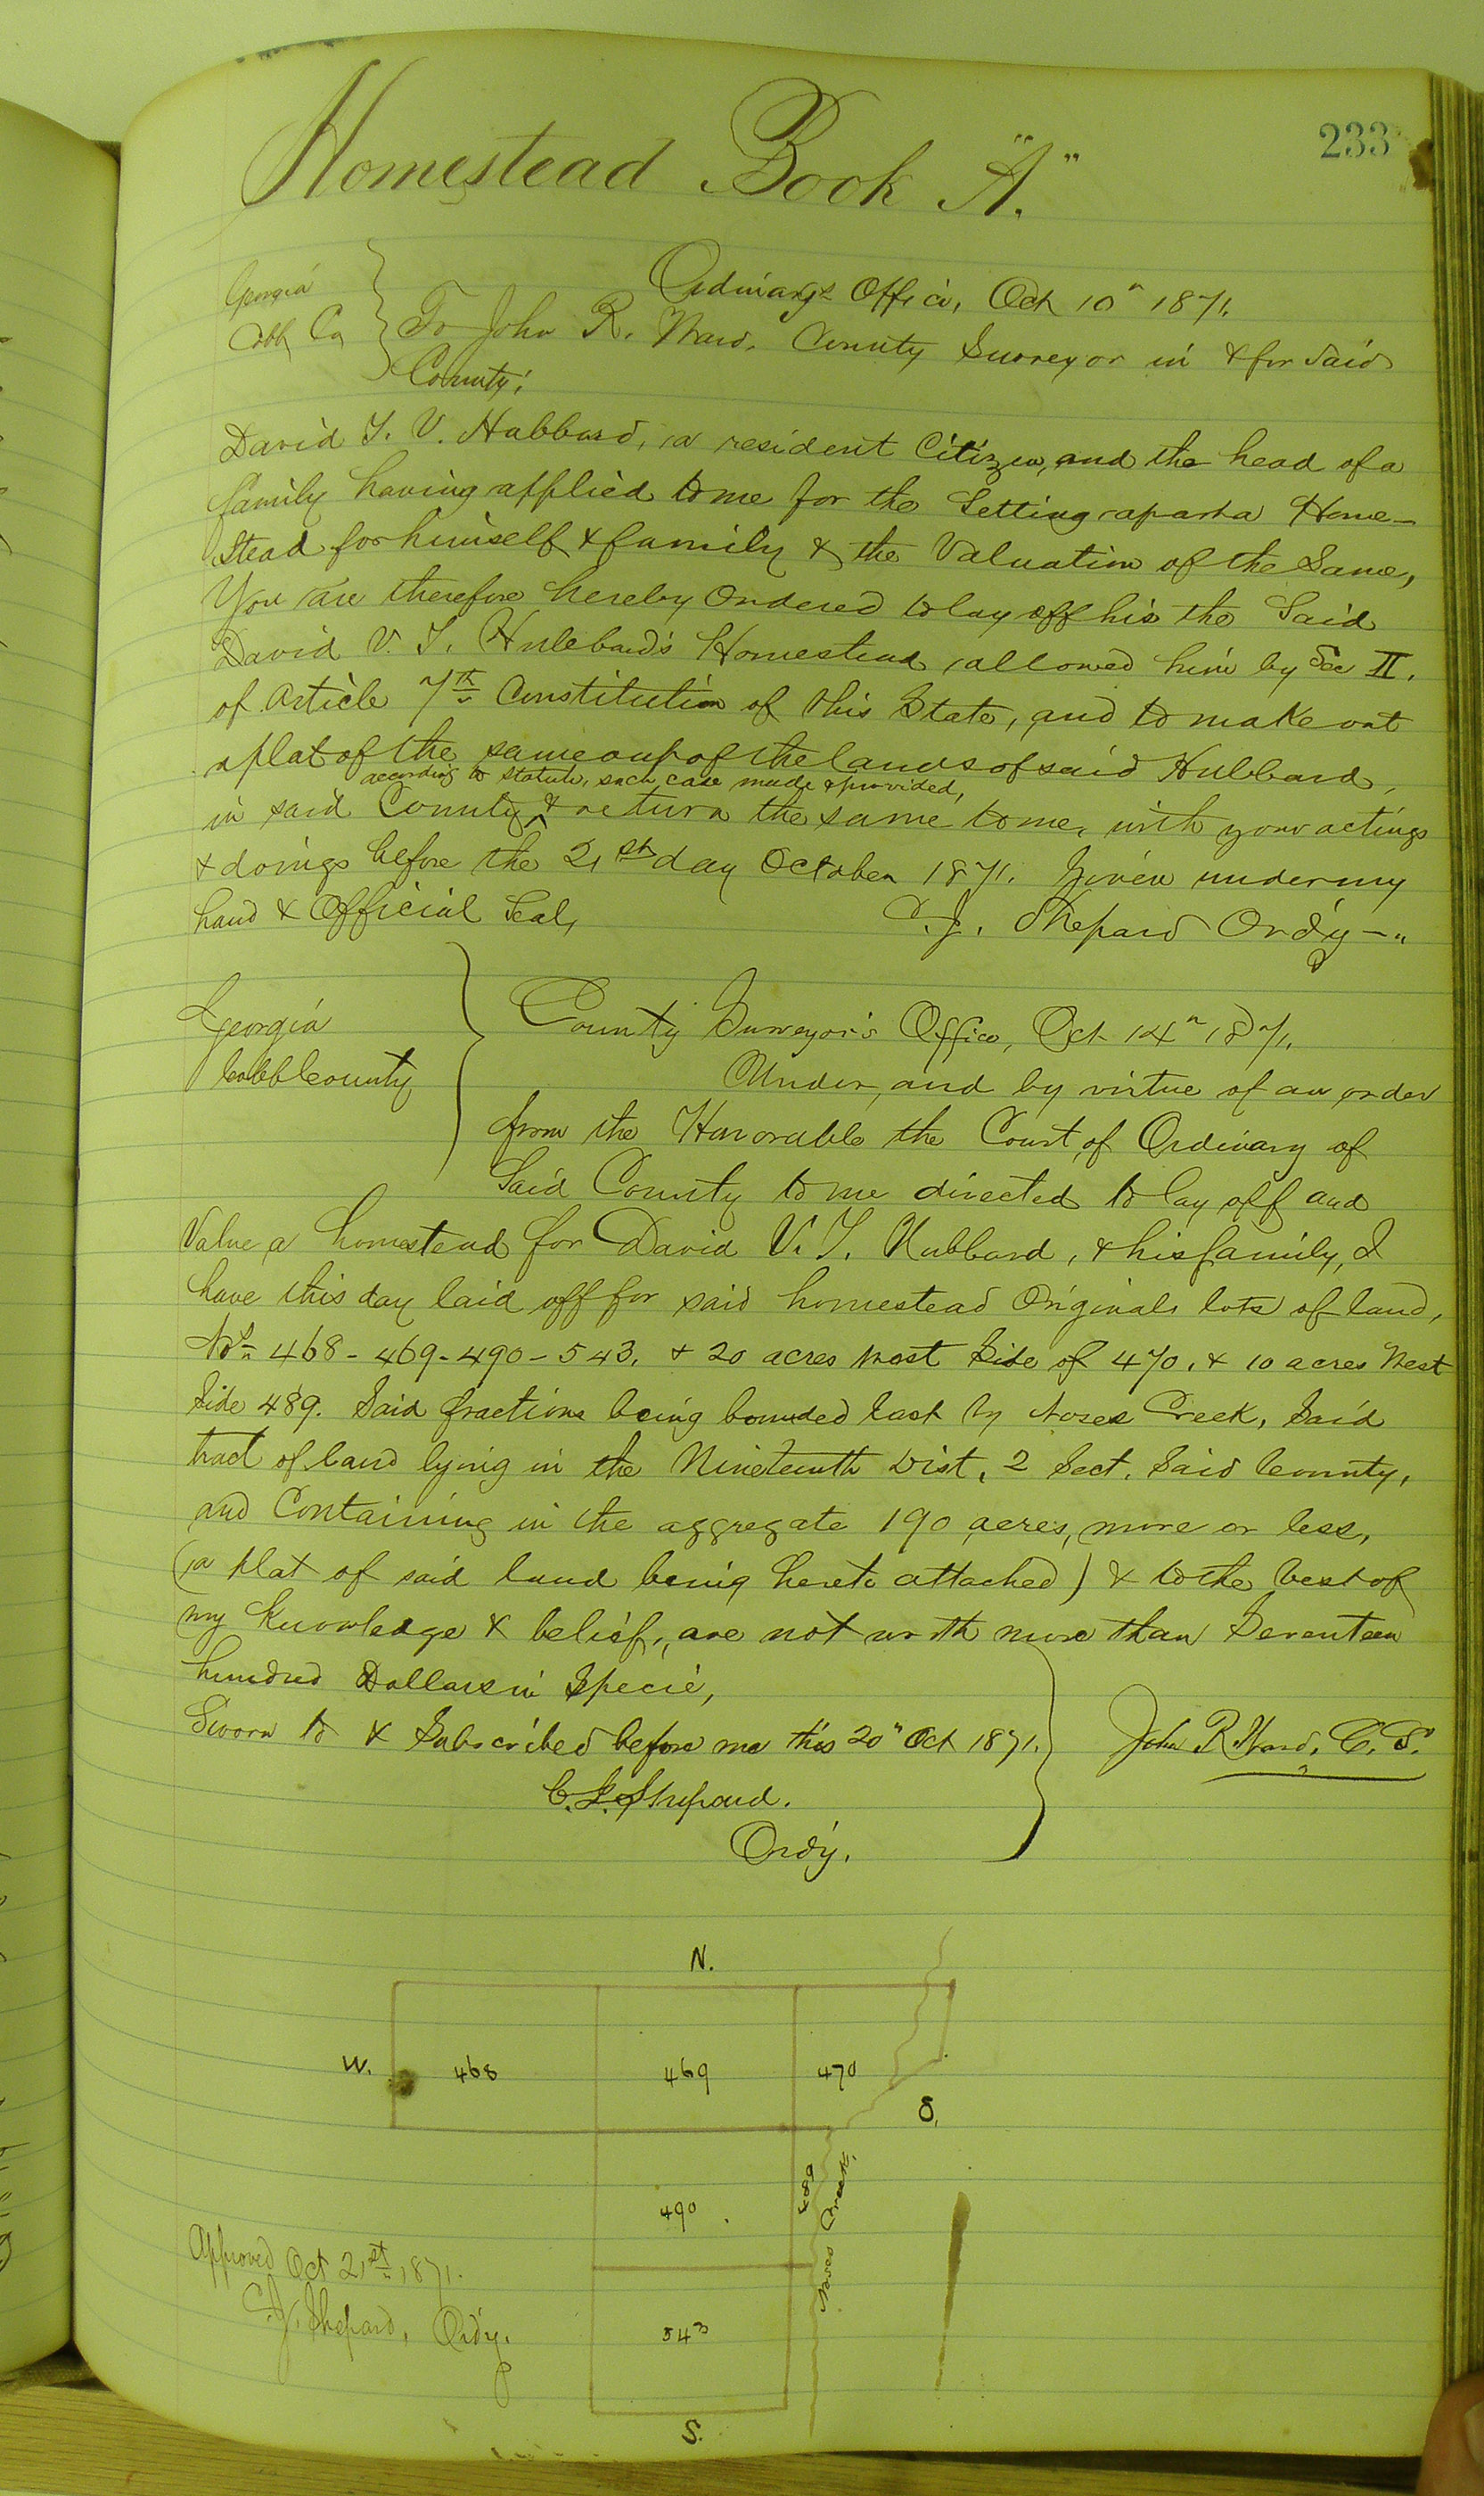 233
Homestead Book "A."
Georgia
Cobb Co
Ordinary's Office, Oct 10" 1871.
To John R. Ward, County Surveyor in & for said
County;
David T. V. Hubbard, a resident Citizen, and the head of a
family having applied to me for the Setting apart a Home-
stead for himself & family & the Valuation of the Same,
You are therefore hereby Ordered to lay off his the Said
David V. T. Hulebard's Homestead, allowed him by Sec II.
of Article 7th Constitution of this State, and to make out
a plat of the same out of the lands of said Hubbard,
according to statute, such case made & provided,
in said County & return the same to me, with your actings
& doings before the 21st day October 1871. Given under my
hand & Official Seal,
C. J. Shepard Ordy—"
Georgia
Cobb County
County Surveyor's Office, Oct 14" 1871.
Under, and by virtue of an order
from the Honorable the Court of Ordinary of
Said County to me directed to lay off and
Value a homestead for David V. T. Hubbard, & his family, I
have this day laid off for said homestead Originals lots of land,
Nos 468-469-490-543, & 20 acres West Side of 470, & 10 acres West
Side 489. Said fractions being bounded East by Noses Creek, Said
tract of land lying in the Nineteenth Dist, 2 Sect. Said County,
and Containing in the aggregate 190 acres, more or less,
(a plat of said land being hereto attached) & to the best of
my knowledge & belief, are not worth more than Seventeen
hundred Dollars in Specie,
Sworn to & Subscribed before me this 20" Oct 1871.
John R Ward, C. S.
C. J. Shepard.
Ordy.
N.
W.
468
469
470
O,
489
Noses Creek.
490
543
S.
Approved Oct 21st 1871.
C. J. Shepard, Ordy.